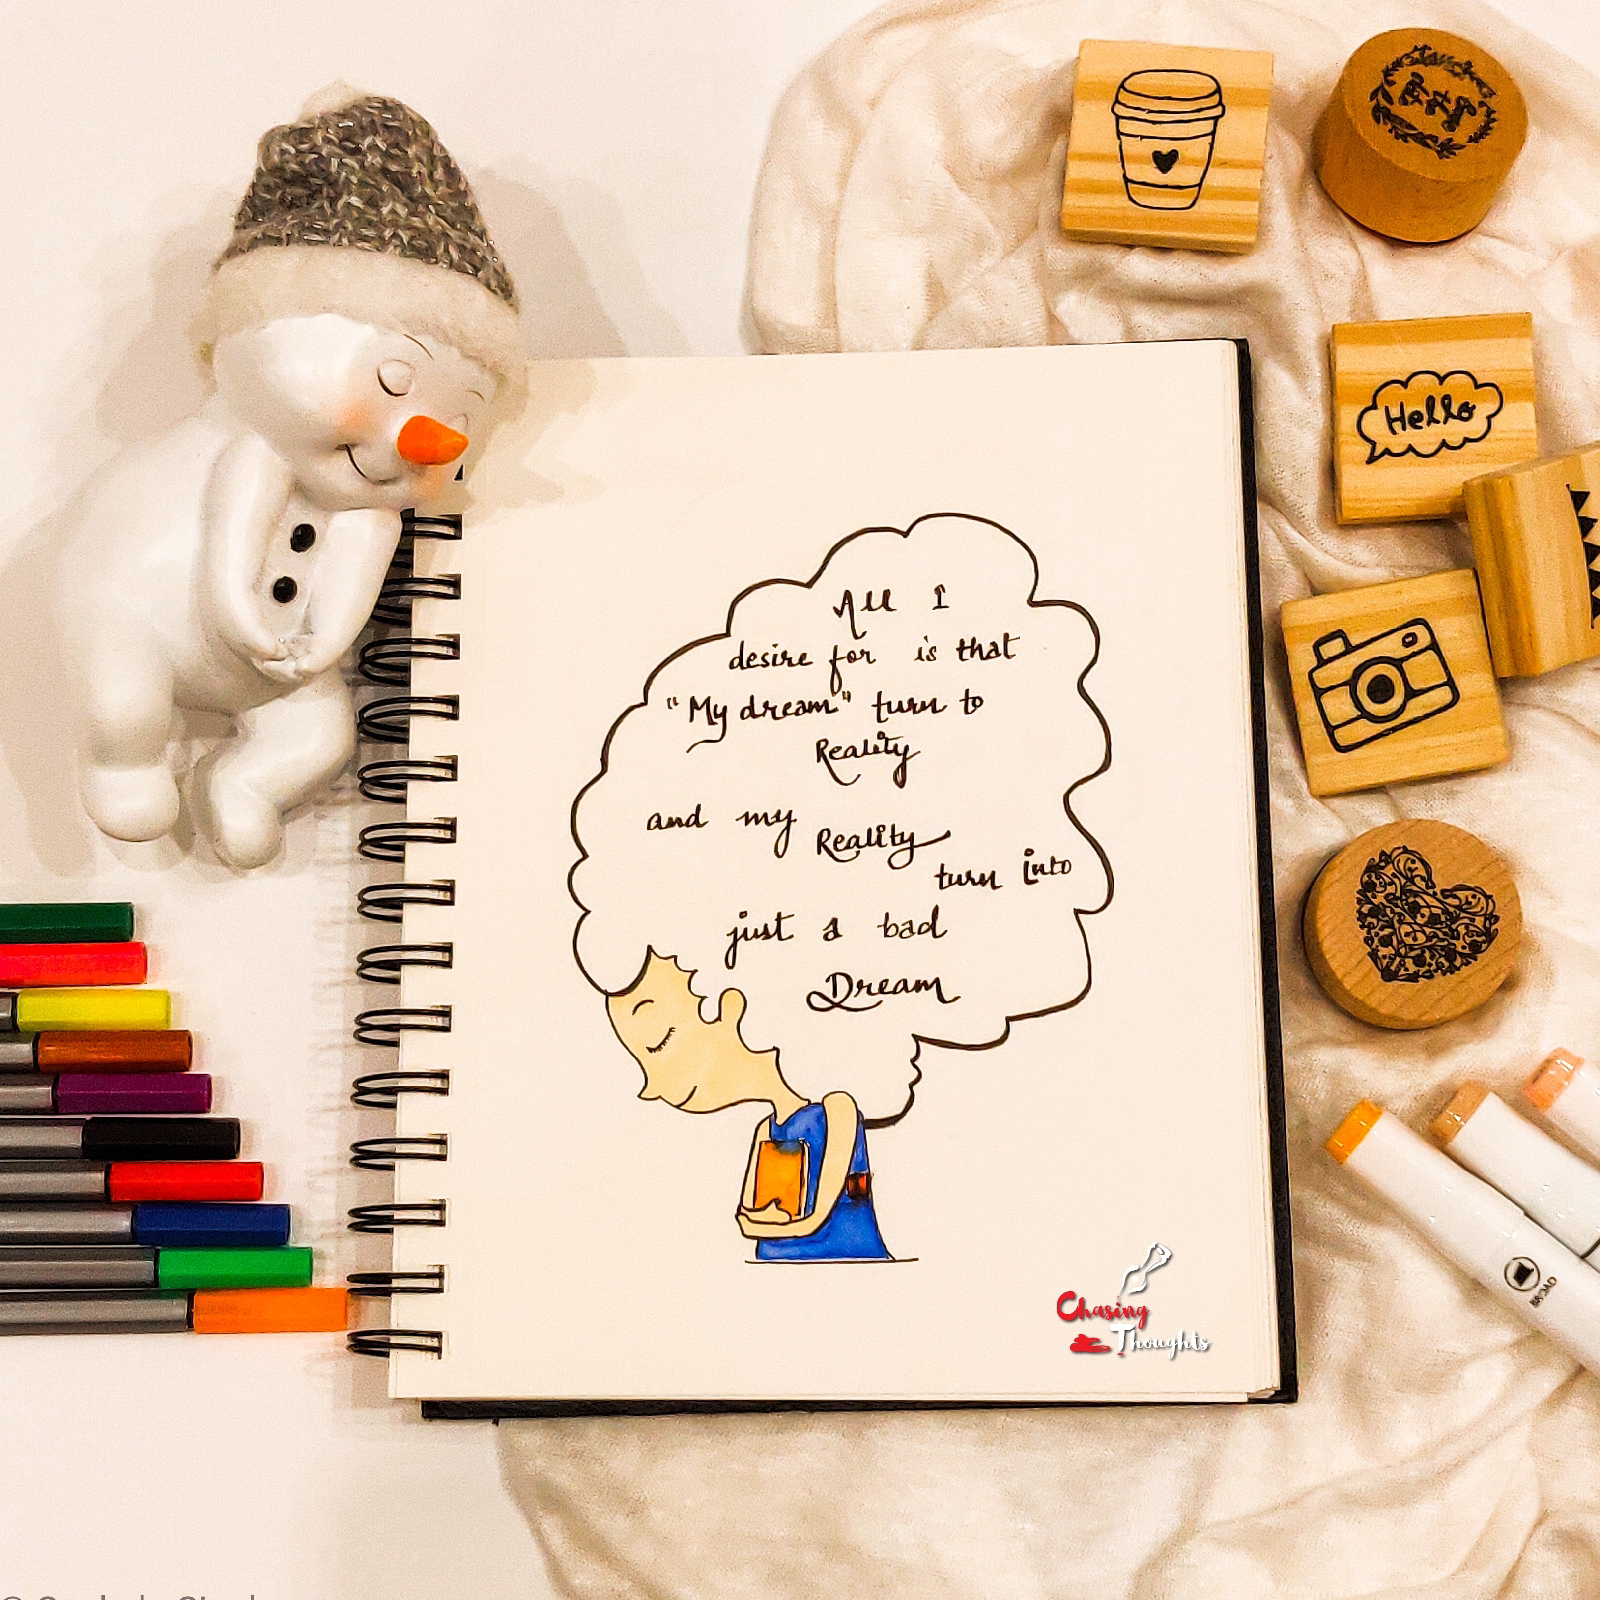 All I
desire for is that
"My dream" turn to
Reality
and my Reality
turn into
just a bad
Dream
Hello
BROAD
Chasing
Thoughts